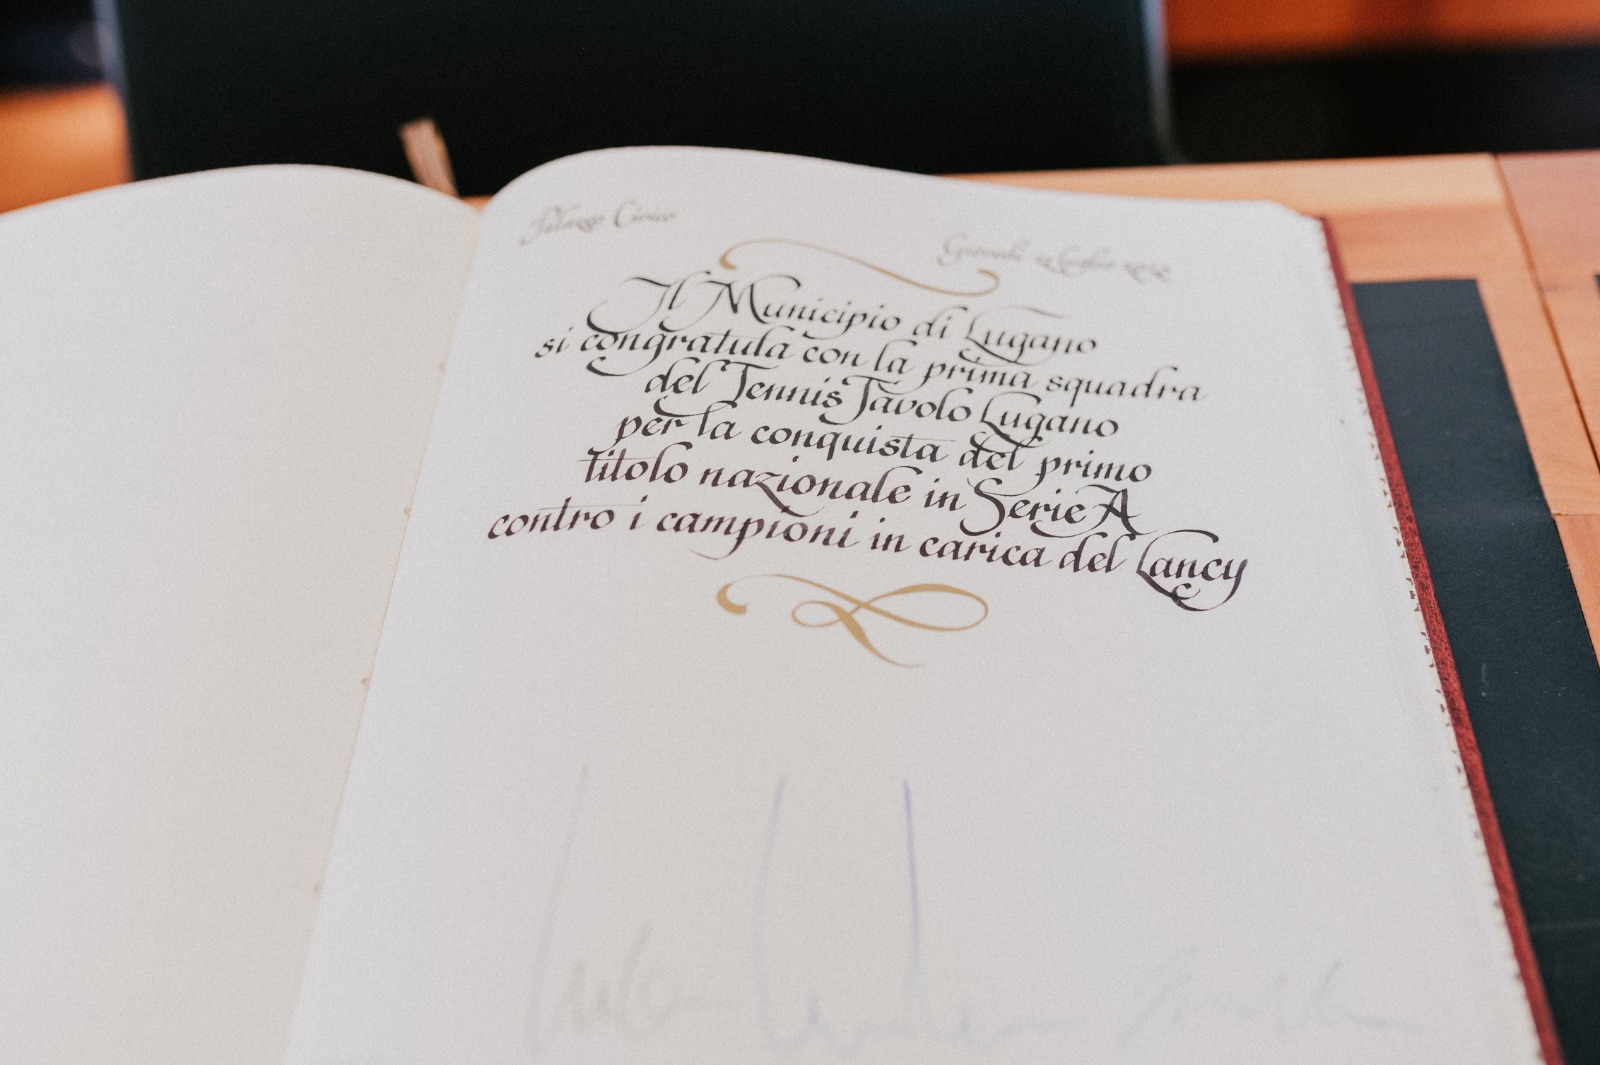 Palazzo Civico
Giovedì luglio
Il Municipio di Lugano
si congratula con la prima squadra
del Tennis Tavolo Lugano
per la conquista del primo
titolo nazionale in Serie A
contro i campioni in carica del Lancy